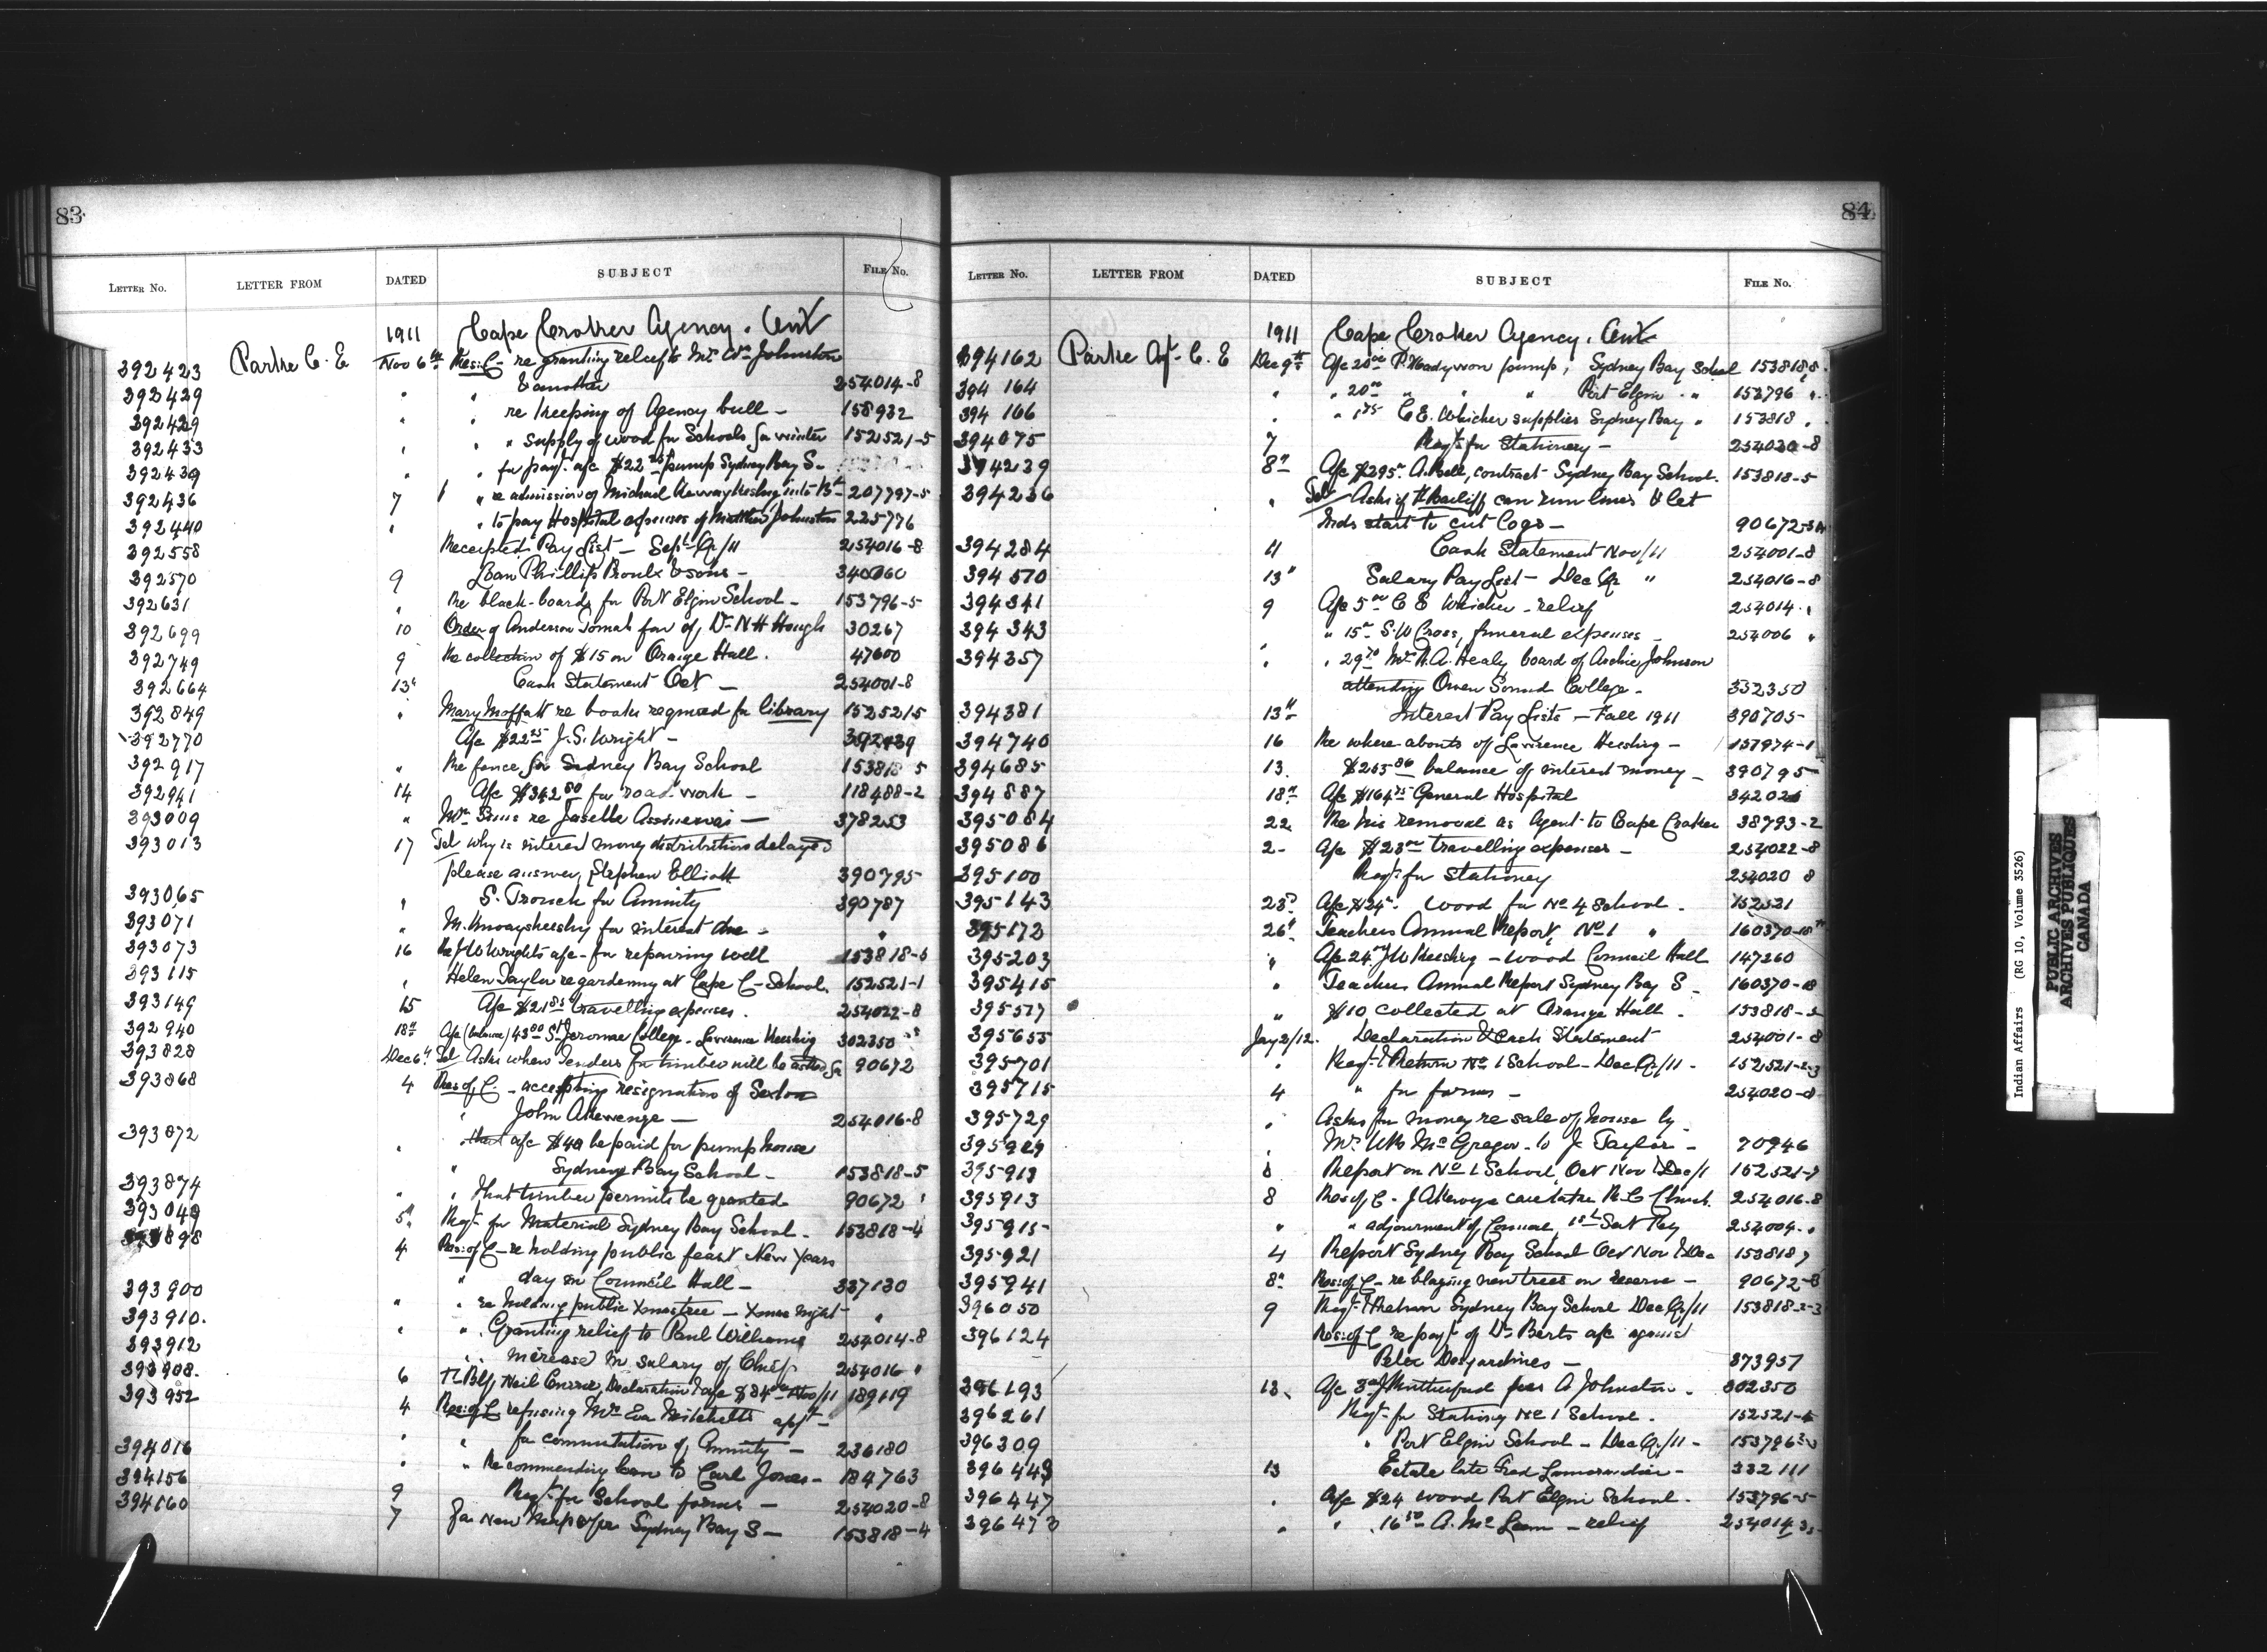 83
LETTER No. LETTER FROM DATED SUBJECT FILE No.
1911 Cape Croker Agency. Ont
392423 Parke C. E Nov 6th Res: C - re granting relief to Mr Wm Johnston
392429 " " & another 254014-8
392429 " " re keeping of Agency bull - 158932
392433 " " supply of wood for Schools for winter 152521-5
392439 " " for payt. a/c $22 pump Sydney Bay S-
392436 7 " re admission of Michael into Bd 207797-5
392440 " " to pay Hospital expenses of Matthew Johnston 225776
392558 Receipted Pay List - Sept Qr/11 254016-8
392570 9 Loan Phillip Proulx & sons - 340060
392631 " Re black-boards for Port Elgin School - 153796-5
392699 10 Order of Anderson Tomah fav of Dr N H Hough 30267
392749 9 Re collection of $15 on Orange Hall. 47600
392664 13" Cash Statement Oct - 254001-8
392849 " Mary Moffatt re books required for library 1525215
392770 A/c $22 25 J. S. Wright - 392439
392917 " Re fence for Sidney Bay School 153818 5
392941 14 A/c $342 80 for road work - 118488-2
393009 " Mr Sims re Joselle - 378253
393013 17 Tel why is interest money distribution delayed
please answer, Stephen Elliott 390795
393065 " S. Tronch for Annuity 390787
393071 " M. for interest due - "
393073 16 Re J W Wrights a/c - for repairing well 153818-5
393115 " Helen Taylor re gardening at Cape C - School. 152521-1
393149 15 A/c $21 85 travelling expenses. 254022-8
392940 18" A/c (balance) 43 00 St Jerome College - Lawrence Keeshig 302350
393828 Dec 6" Tel Asks when Tenders for timber will be asked for 90672
393868 4 Res of C. - accepting resignation of Sexton
" John Akewenge - 254016-8
393872 " that a/c $40 be paid for pump house
" Sydney Bay School - 153818-5
393874 " " That timber permits be granted 90672 "
393049 5" Reqt. for Material Sydney Bay School - 153818-4
393898 4 Res: of C - re holding public feast New Years
" day in Council Hall - 337130
393900 " " re holding public Xmas tree - Xmas Night - "
393910. " " Granting relief to Paul Williams 254014-8
393912 " increase in salary of Chief 254016 "
393908. 6 Neil Currie, Declaration & a/c $84 00 Nov/11 189119
393952 4 Res: of C refusing Mrs Eva Mitchells appt -
" " for commutation of Annuity - 236180
394016 " " Recommending loan to Carl Jones - 184763
394156 9 Reqt. for School forms - 254020-8
394160 7 For New Map &/or Sydney Bay S - 153818-4
84
LETTER No. LETTER FROM DATED SUBJECT FILE No.
1911 Cape Croker Agency. Ont
394162 Parke Agt. C. E Dec 9th A/c 20 00 P. pump, Sydney Bay School 153818,8.
394 164 " " 20 00 " " Port Elgin " 153796 "
394 166 " " 75 C. E. Whicher supplies Sydney Bay " 153818 "
394075 7 Reqt. for Stationery - 254020-8
394239 8" A/c $295 A. Bell, contract Sydney Bay School. 153818-5
394236 " Tel Asks if Th Bailiff can run lines & let
Inds start to cut logs - 90672-3A
394284 11 Cash Statement Nov/11 254001-8
394370 13" Salary Pay List - Dec Qr " 254016-8
394341 9 A/c 5 00 C E Whicher - relief 254014 "
394 343 " 15 00 S. W Cross, funeral expenses - 254006 "
394357 " " 29 70 Mr R. A. Healy board of Archie Johnson
attending Owen Sound College - 332350
394381 13" Interest Pay Lists - Fall 1911 390705
394740 16 Re where abouts of Lawrence Keeshig - 157974-1
394685 13. $255 86 balance of interest money - 390795
394887 18" A/c $164 75 General Hospital 342026
395084 22 Re his removal as Agent to Cape Croker 38793-2
395086 2- A/c $23 00 travelling expenses - 254022-8
395100 Reqt. for Stationery 254020 8
395143 23? A/c $24 Wood for No 4 School. 152521
395172 26" Teachers Annual Report, No 1 " 160370-18
395203 " A/c 24 00 J W Keeshig - wood Council Hall 147260
395415 " Teachers Annual Report Sydney Bay S - 160370-18
395577 " $10 collected at Orange Hall. 153818-5
395655 Jany 2/12. Declaration & Cash Statement 254001-8
395701 " Reqt. & Return No 1 School - Dec Qr/11 - 152521-2-3
395715 4 " for forms - 254020-8
395729 " Asks for money re sale of house by
395929 " Mr Wm McGregor - to J. Taylor - 70946
395913 8 Report on No 1 School, Oct Nov & Dec/11 152521-7
395913 8 Res of C - J Akewenge caretaker R. C Church. 254016-8
395915 " " adjournment of Council, 254004. "
395921 4 Report Sydney Bay School Oct Nov & Dec 153818 7
395941 8" Res: of C - re blazing new trees on reserve - 90672-8
396050 9 Reqt. & Return Sydney Bay School Dec Qr/11 153818-2-3
396124 Res: of C re payt of Dr Berts a/c against
Peter Desjardines - 373957
396193 12. A/c 3 00 J Rutherford fees A Johnston. 302350
396261 Reqt. for Stationy No 1 School. 152521-4
396309 " Port Elgin School - Dec Qr/11 - 153796 2-3
396443 13 Estate late Fred Lamorandier - 332111
396447 " A/c $24 wood Port Elgin School. 153796-5
396473 " " 16 50 A. McLean - relief 254014
Indian Affairs (RG 10, Volume 3526)
PUBLIC ARCHIVES
ARCHIVES PUBLIQUES
CANADA